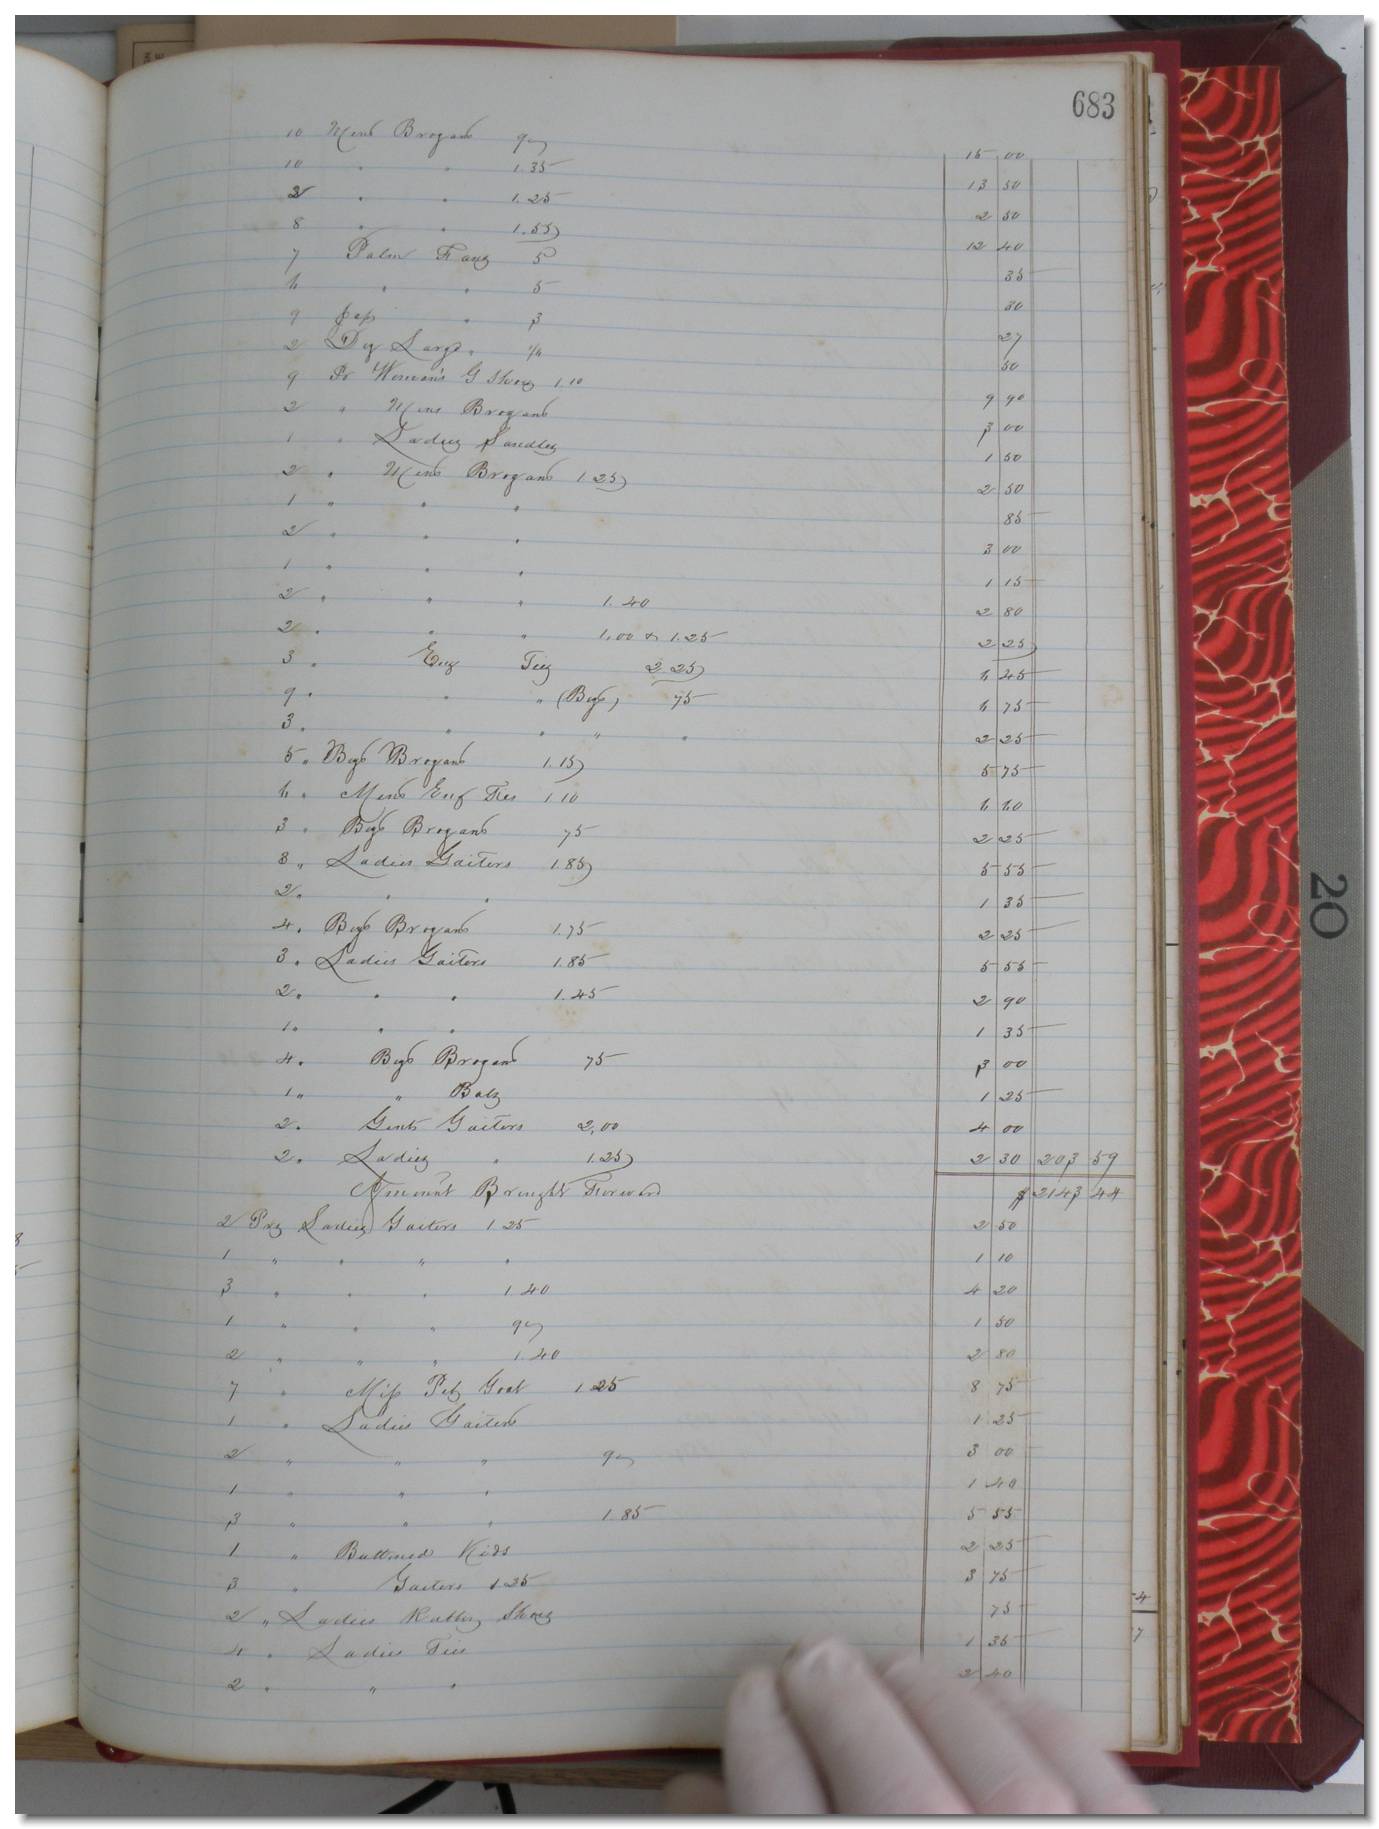 683
10 Mens Brogans 9/ 15 00
10 " " 1.35 13 50
2 " " 1.25 2 50
8 " " 1.55 12 40
7 Palm Fans 5 35
6 " " 5 30
9 Jap " 3 27
2 Dz Large " ¼ 50
9 Pr Woman's G Shoes 1.10 9 90
2 " Mens Brogans 3 00
1 " Ladies Sandles 1 50
2 " Mens Brogans 1.25 2 50
1 " " " 85
2 " " " 3 00
1 " " " 1 15
2 " " " 1.40 2 80
2 " " " 1.00 & 1.25 2 25
3 " Eng Ties 2.25 6 45
9 " " " (Boys) 75 6 75
3 " " " " " 2 25
5 " Boys Brogans 1.15 5 75
6 " Mens Eng Ties 1 10 6 60
3 " Boys Brogans 75 2 25
3 " Ladies Gaiters 1.85 5 55
2 " " " 1 35
4 " Boys Brogans 1.75 2 25
3 " Ladies Gaiters 1.85 5 55
2 " " " 1.45 2 90
1 " " " 1 35
4 " Boys Brogans 75 3 00
1 " " Bals 1 25
2 " Gents Gaiters 2,00 4 00
2 " Ladies " 1.25 2 30 203 59
Amount Brought Forward $ 2143 44
2 Prs Ladies Gaiters 1 25 2 50
1 " " " " 1 10
3 " " " 1 40 4 20
1 " " " 9/ 1 50
2 " " " 1.40 2 80
7 " Miss Peb Goat 1 25 8 75
1 " Ladies Gaiters 1 25
2 " " " 9/ 3 00
1 " " " 1 40
3 " " " 1.85 5 55
1 " Buttoned Kids 2 25
3 " Gaiters 1.25 3 75
2 " Ladies Rubber Shoes 75
4 " Ladies Ties 1 35
2 " " " 2 40
20